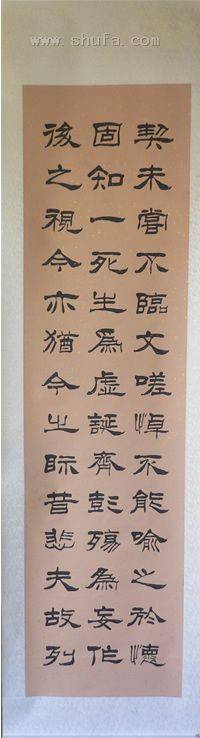 www.shufa.com
契未嘗不臨文嗟悼不能喻之於懷
固知一死生爲虛誕齊彭殤為妄作
後之視今亦猶今之眎昔悲夫故列